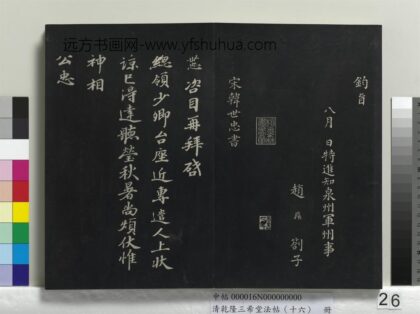 鈞旨
八月 日特進知泉州軍州事
趙鼎劄子
宋韓世忠書
世忠咨目再拜啓
總領少卿台座近專遣人上狀
諒已得達聽瑩秋暑尚煩伏惟
神相
公忠
远方书画网-www.yfshuhua.com
中帖 000016N000000000
清乾隆三希堂法帖(十六) 册
26